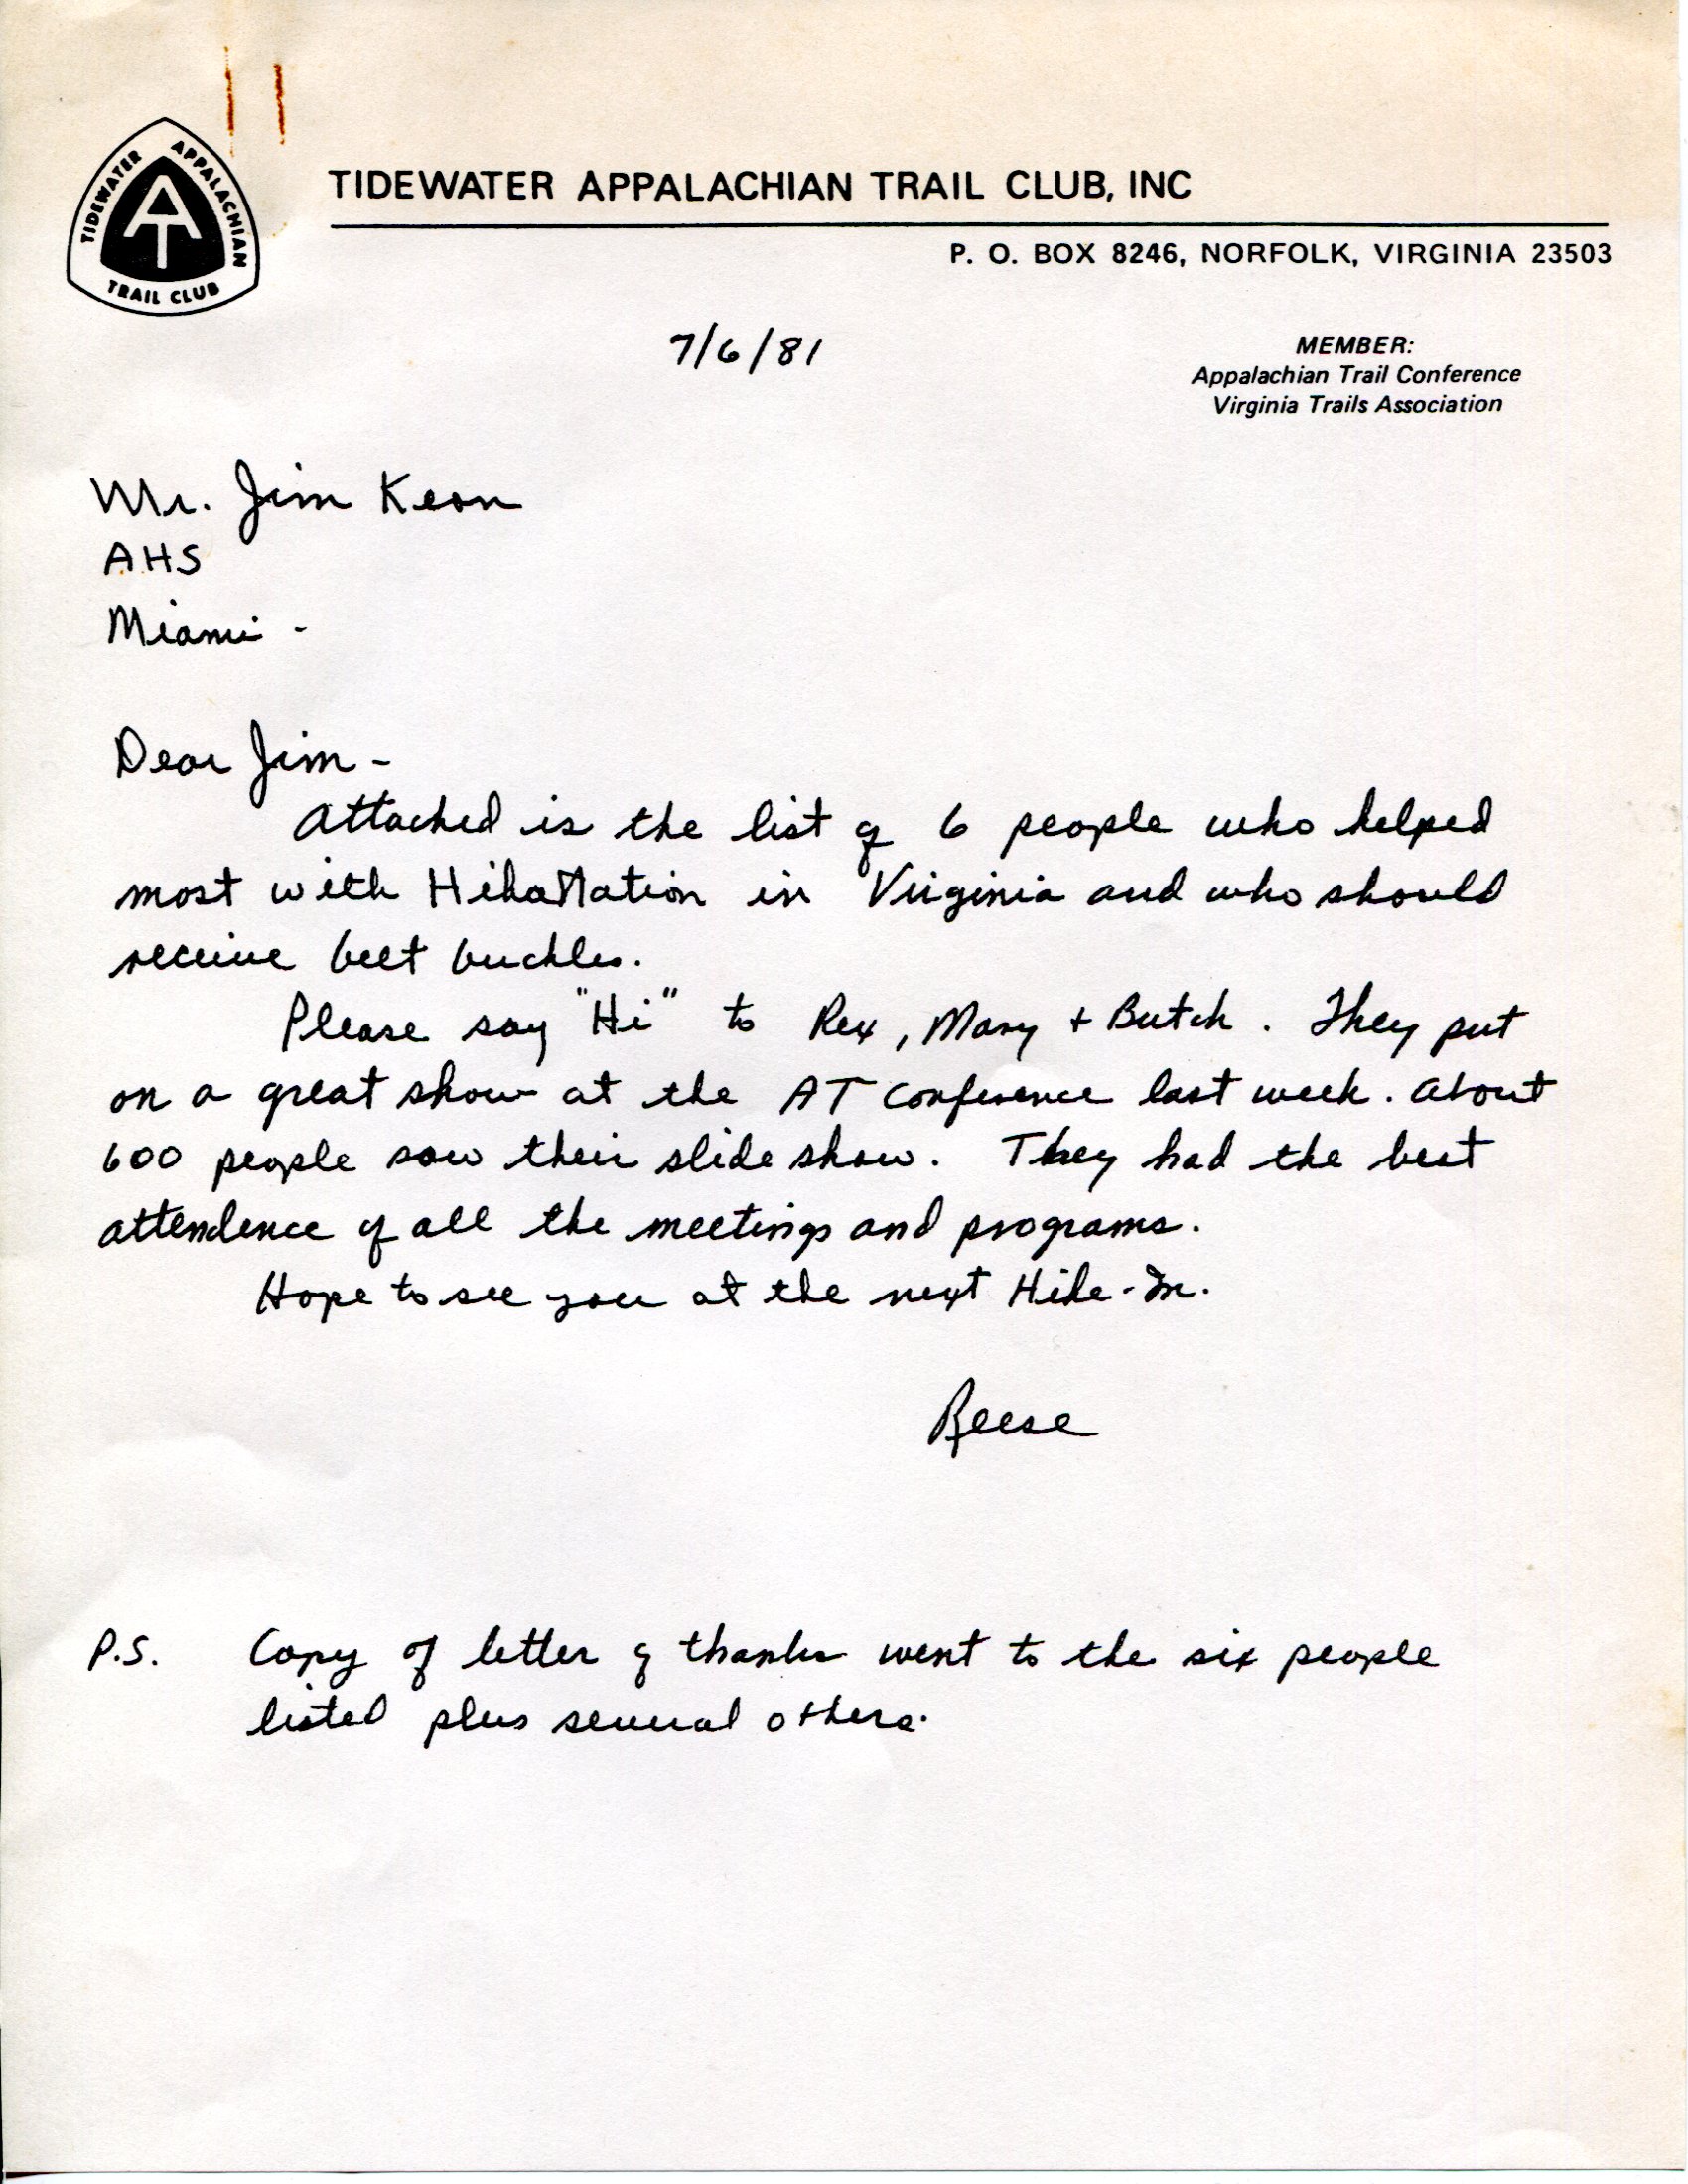 TIDEWATER APPALACHIAN TRAIL CLUB
AT
TIDEWATER APPALACHIAN TRAIL CLUB, INC
P. O. BOX 8246, NORFOLK, VIRGINIA 23503
7/6/81
MEMBER:
Appalachian Trail Conference
Virginia Trails Association
Mr. Jim Keon
AHS
Miami -
Dear Jim -
Attached is the list of 6 people who helped
most with HikaNation in Virginia and who should
receive belt buckles.
Please say "Hi" to Rex, Mary + Butch. They put
on a great show at the AT Conference last week. About
600 people saw their slide show. They had the best
attendence of all the meetings and programs.
Hope to see you at the next Hike-In.
Reese
P.S. Copy of letter of thanks went to the six people
listed plus several others.